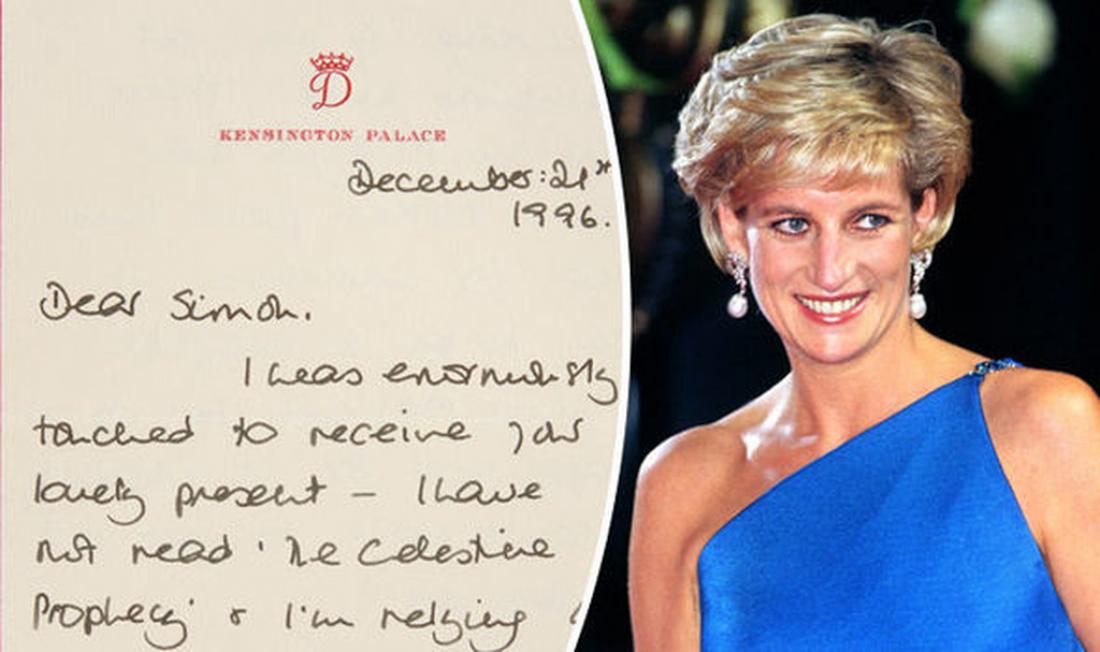 D
KENSINGTON PALACE
December: 21st
1996.
Dear Simon.
I was enormously
touched to receive your
lovely present – I have
not read 'The Celestine
Prophecy' & I'm relying